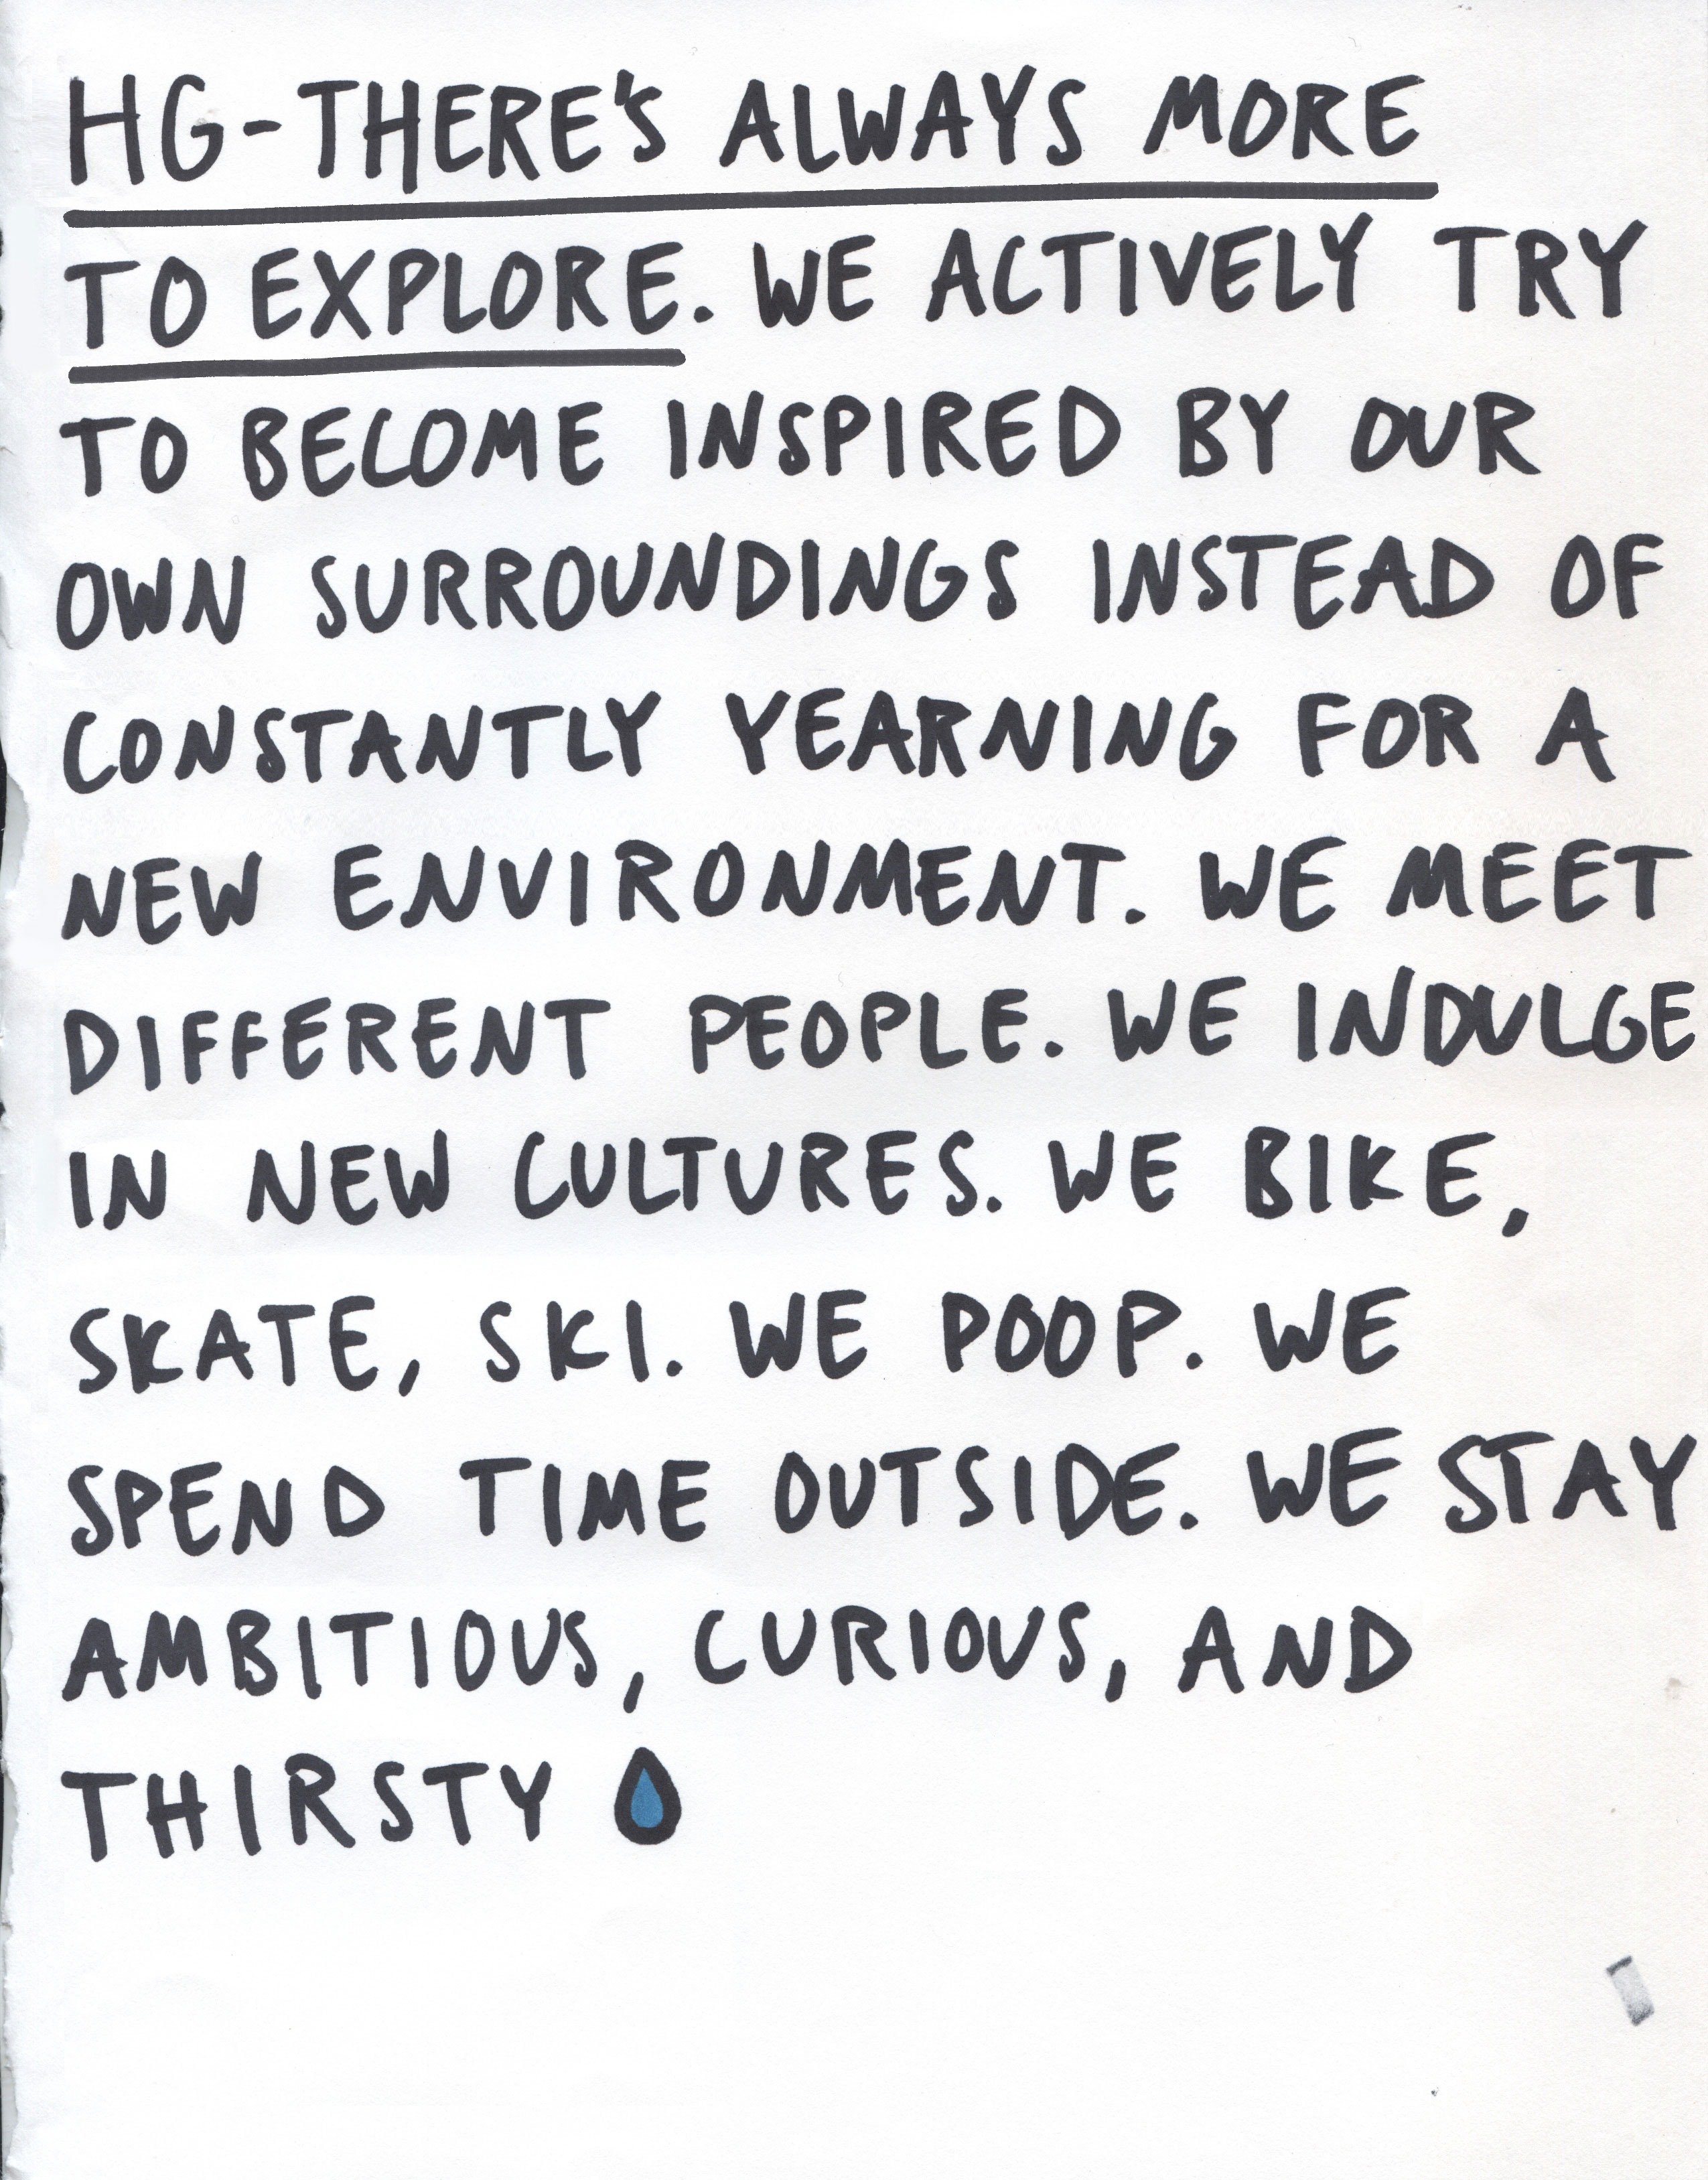 HG-THERE'S ALWAYS MORE
TO EXPLORE. WE ACTIVELY TRY
TO BECOME INSPIRED BY OUR
OWN SURROUNDINGS INSTEAD OF
CONSTANTLY YEARNING FOR A
NEW ENVIRONMENT. WE MEET
DIFFERENT PEOPLE. WE INDULGE
IN NEW CULTURES. WE BIKE,
SKATE, SKI. WE POOP. WE
SPEND TIME OUTSIDE. WE STAY
AMBITIOUS, CURIOUS, AND
THIRSTY